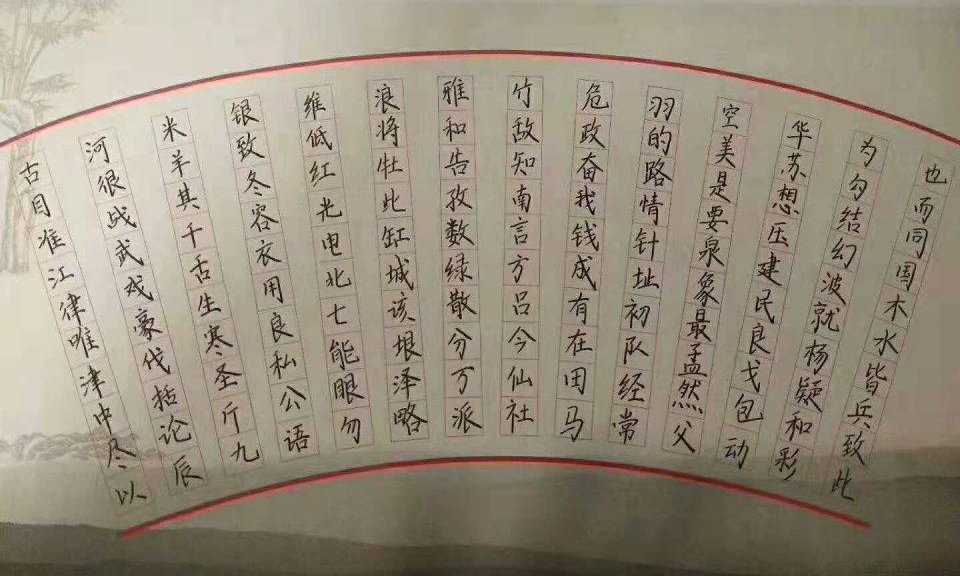 也而同国木水皆兵致此
为勾结幻波就杨疑和彩
华苏想压建民良戈包动
空美是要泉象最孟然父
羽的路情针址初队经常
危政奋我钱成有在田马
竹敌知南言方吕今仙社
雅和告孜数绿散分万派
浪将牡此缸城该垠泽略
维低红光电北七能眼勿
银致冬容衣用良私公语
米羊其千舌生寒圣斤九
河很战武戏豪伐括论辰
古目准江律唯津冲尽以